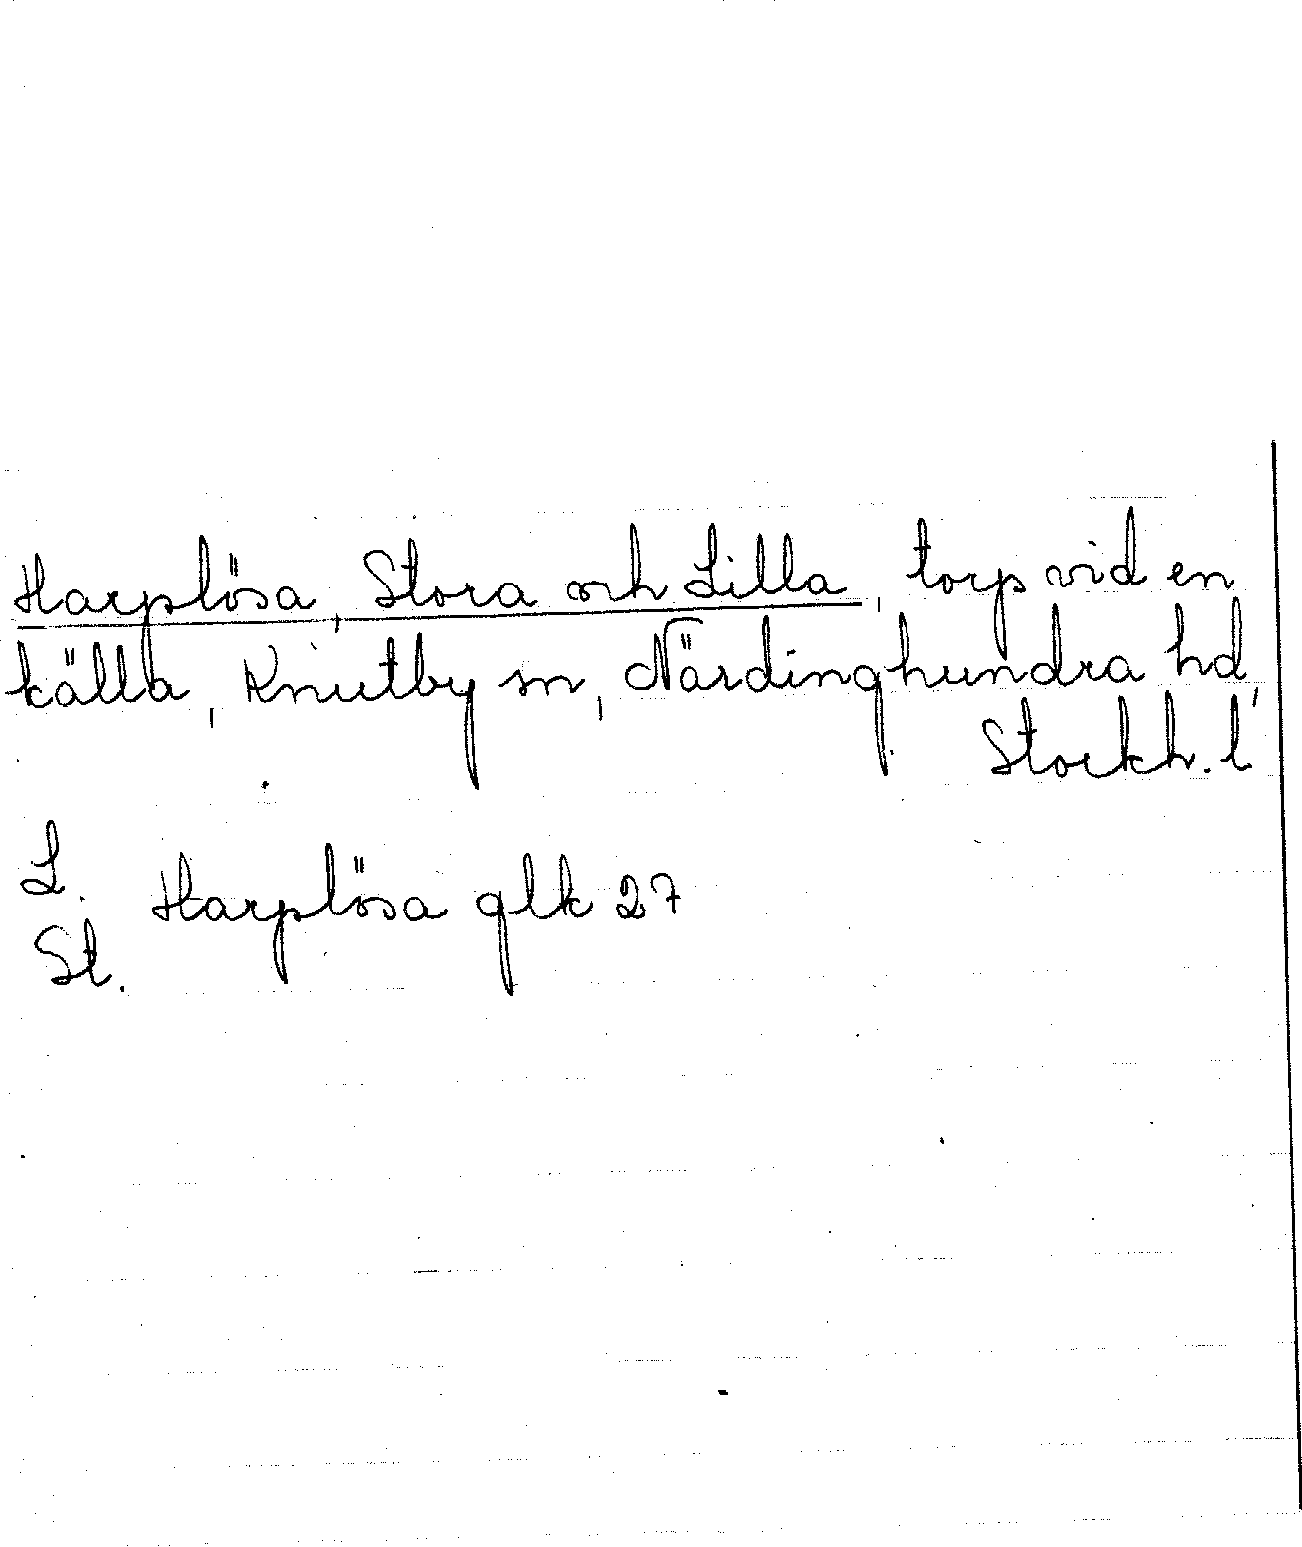 Harplösa, Stora och Lilla, torp vid en
källa, Knutby sn, Närdinghundra hd,
Stockh. l
L.
Harplösa glk 27
St.